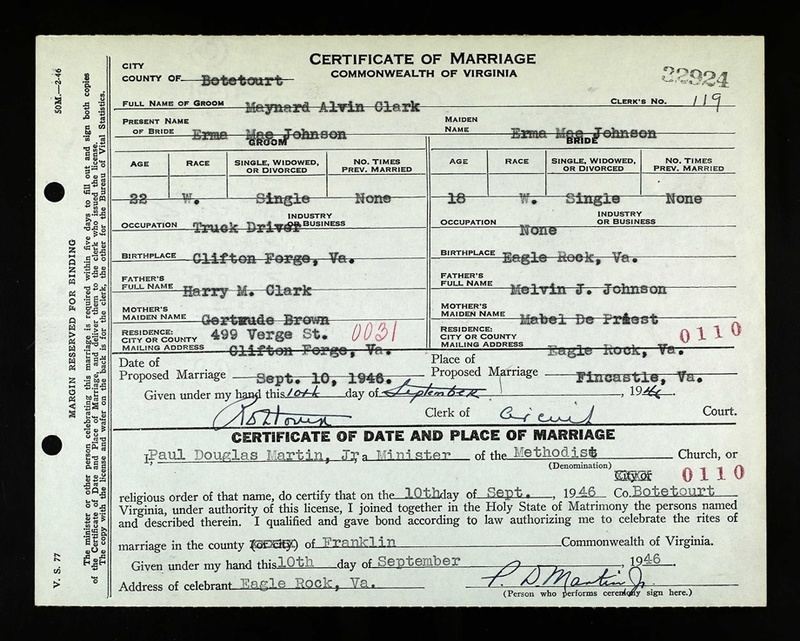 CERTIFICATE OF MARRIAGE
COMMONWEALTH OF VIRGINIA
CITY
COUNTY OF Botetourt
32924
FULL NAME OF GROOM Maynard Alvin Clark CLERK'S NO. 119
PRESENT NAME OF BRIDE Erma Mae Johnson MAIDEN NAME Erma Mae Johnson
GROOM BRIDE
AGE RACE SINGLE, WIDOWED, OR DIVORCED NO. TIMES PREV. MARRIED AGE RACE SINGLE, WIDOWED, OR DIVORCED NO. TIMES PREV. MARRIED
22 W. Single None 18 W. Single None
OCCUPATION Truck Driver INDUSTRY OR BUSINESS OCCUPATION None INDUSTRY OR BUSINESS
BIRTHPLACE Clifton Forge, Va. BIRTHPLACE Eagle Rock, Va.
FATHER'S FULL NAME Harry M. Clark FATHER'S FULL NAME Melvin J. Johnson
MOTHER'S MAIDEN NAME Gertrude Brown MOTHER'S MAIDEN NAME Mabel De Priest
RESIDENCE: CITY OR COUNTY MAILING ADDRESS 499 Verge St. 0031 RESIDENCE: CITY OR COUNTY MAILING ADDRESS 0110
Clifton Forge, Va. Eagle Rock, Va.
Date of Proposed Marriage Sept. 10, 1946. Place of Proposed Marriage Fincastle, Va.
Given under my hand this 10th day of September, 1946.
Clerk of Circuit Court.
CERTIFICATE OF DATE AND PLACE OF MARRIAGE
I, Paul Douglas Martin, Jr, a Minister of the Methodist Church, or
(Denomination) City of 0110
religious order of that name, do certify that on the 10th day of Sept., 1946 Co. Botetourt
Virginia, under authority of this license, I joined together in the Holy State of Matrimony the persons named
and described therein. I qualified and gave bond according to law authorizing me to celebrate the rites of
marriage in the county (or city) of Franklin Commonwealth of Virginia.
Given under my hand this 10th day of September 1946.
Address of celebrant Eagle Rock, Va. P. D. Martin Jr.
(Person who performs ceremony sign here.)
V. S. 77 50M.—2-46
MARGIN RESERVED FOR BINDING
The minister or other person celebrating this marriage is required within five days to fill out and sign both copies
of the Certificate of Date and Place of Marriage, and deliver them to the clerk who issued the license.
The copy with the license and wafer on the back is for the clerk, the other for the Bureau of Vital Statistics.